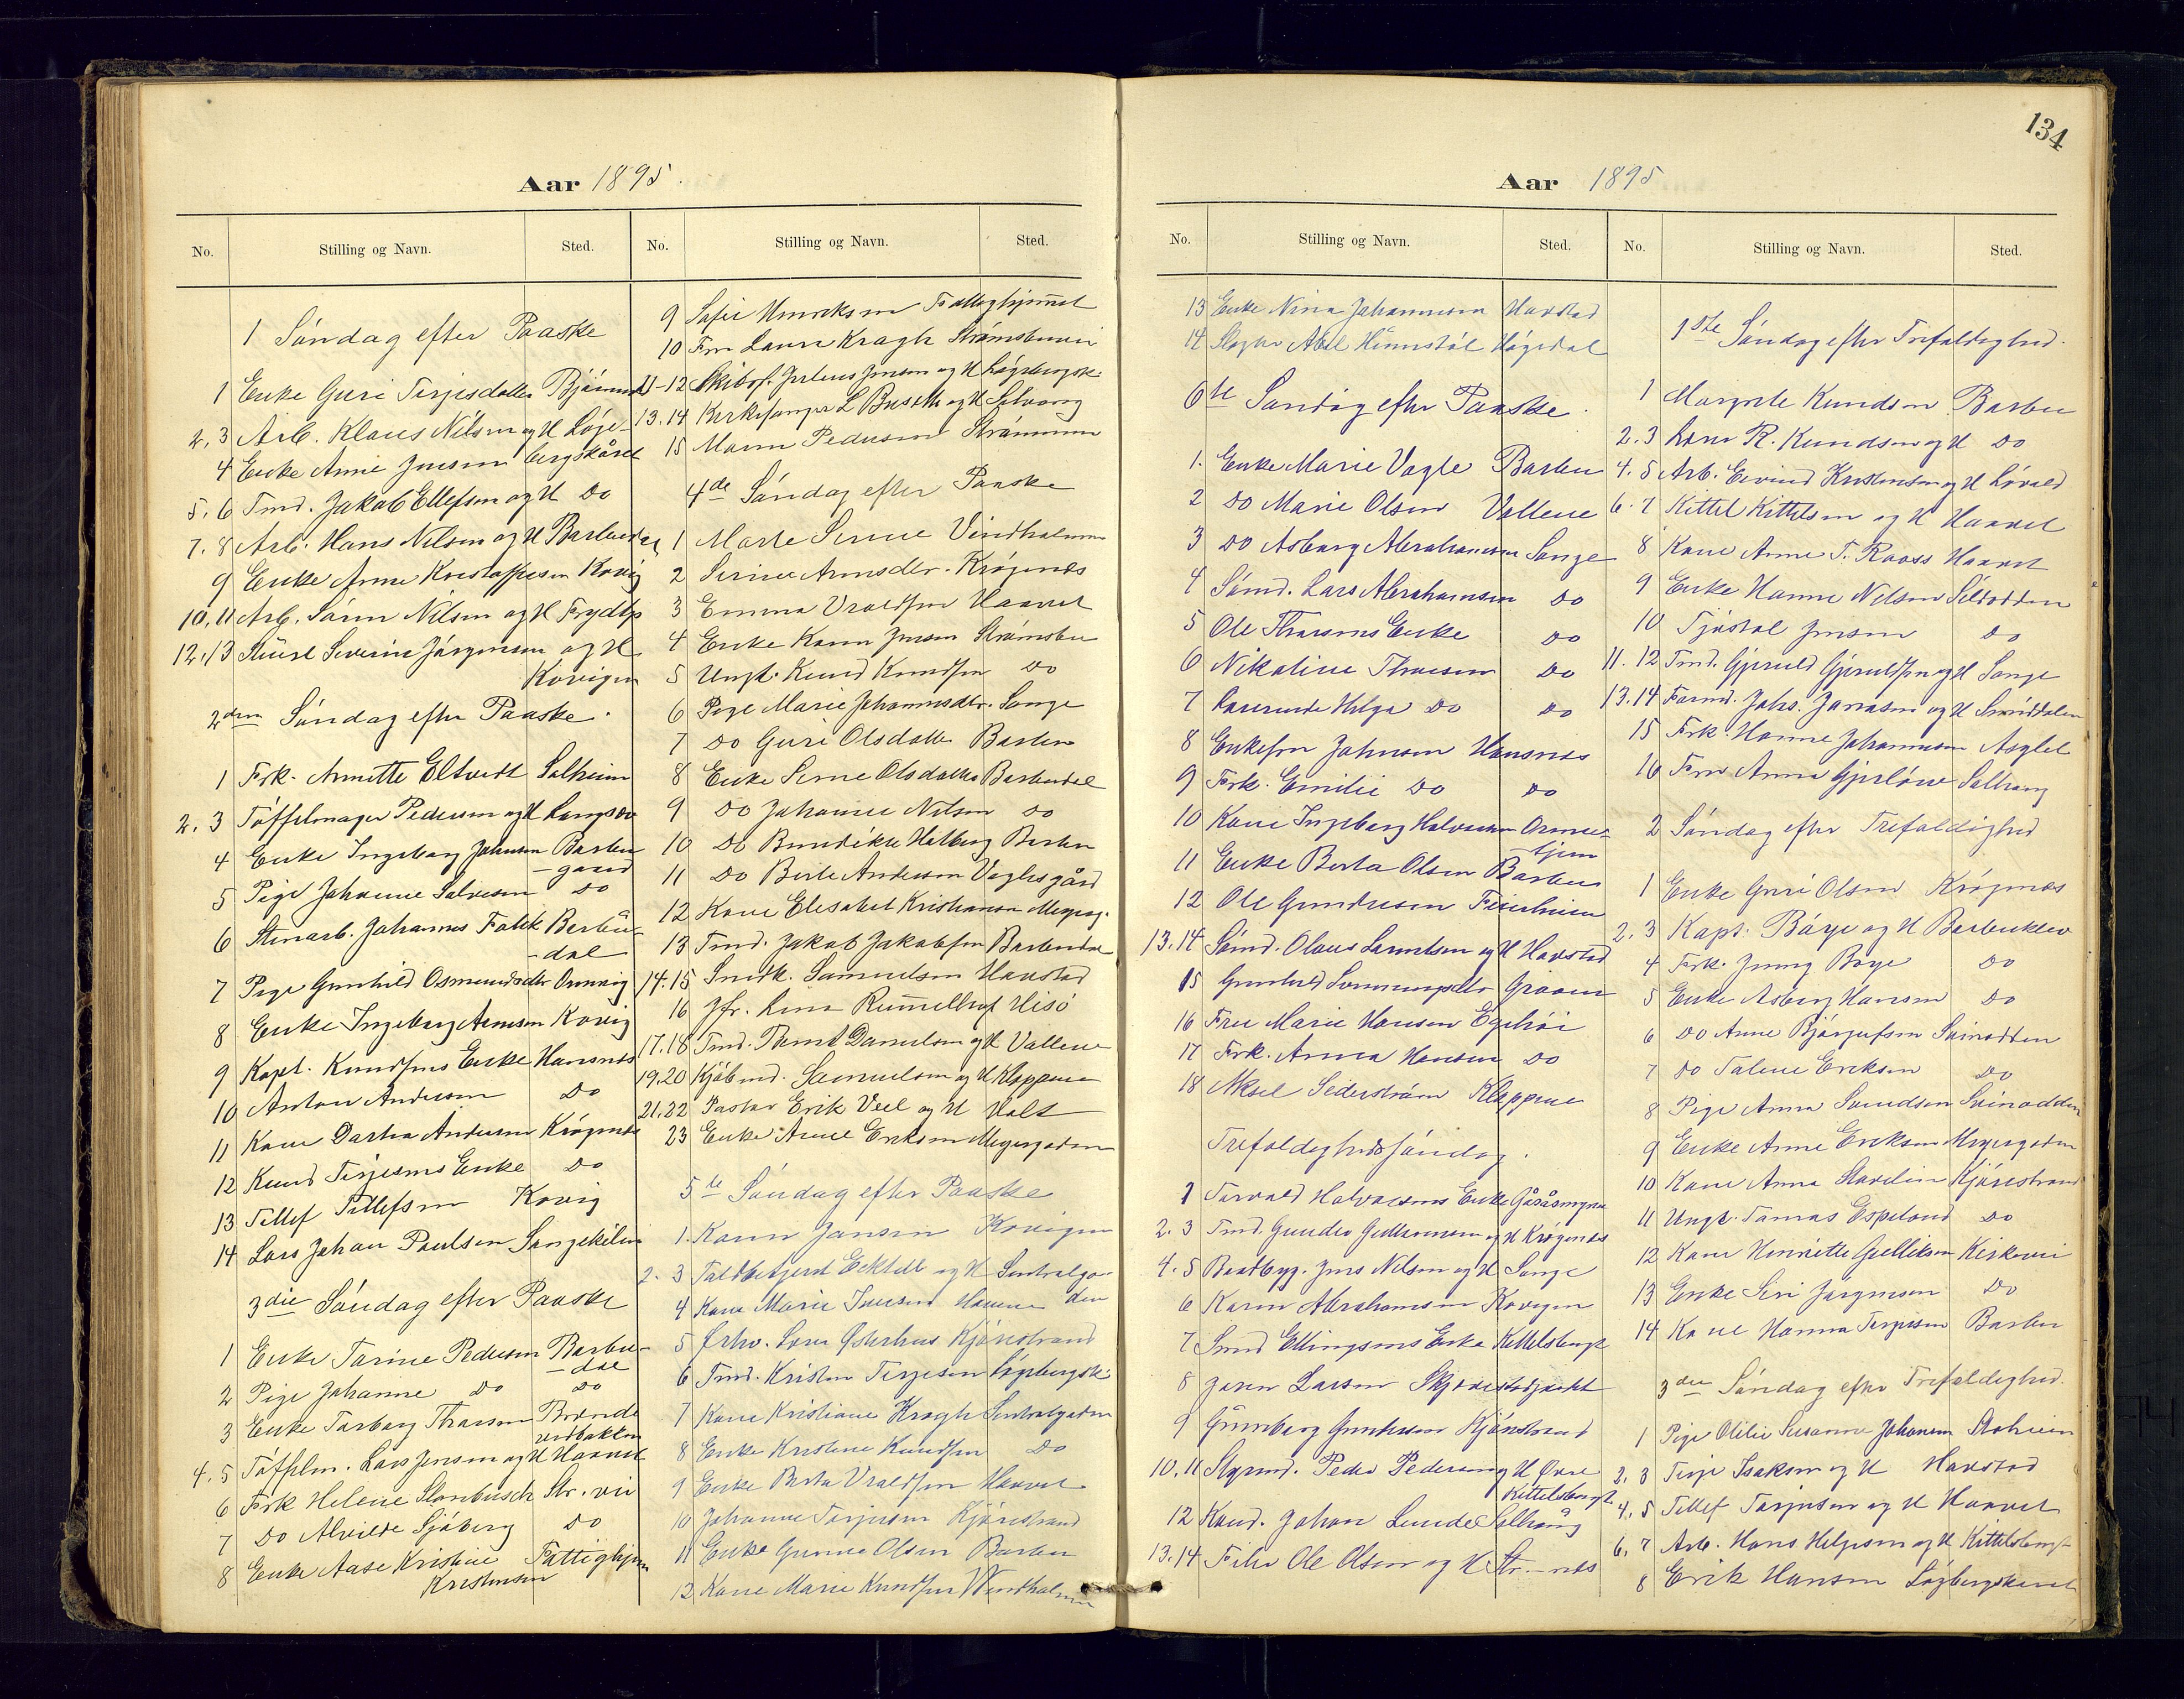 Aar 1895.
No. Stilling og Navn. Sted. No. Stilling og Navn. Sted.
1 Søndag efter Paaske
1 Enke Guri Terjesdatter
2, 3 Arb. Klaus Nilsen og H Løge-
4 Enke Anne Jensen bergskåret
5, 6 Tmd. Jakob Ellefsen og H Do
7. 8 Arb. Hans Nilsen og H Barbudal
9 Enke Anne Kristoffersen Kovig
10, 11 Arb. Søren Nilsen og H
12, 13 Severin Jørgensen og H
Kovigen
2den Søndag efter Paaske.
1 Frk. Annette Eltvedt Solheim
2. 3 Tøffelmager Pedersen og H Langsæ
4 Enke Ingeborg Johnsen Barbu
-gaard
5 Pige Johanne Salvesen Do
6 Stenarb. Johannes Falk Barbu-
-dal
7 Pige Gunhild Osmundsdtr
8 Enke Ingeborg Arnesen Kovig
9 Kapt. Knudsens Enke Hansnes
10 Anton Andersen Do
11 Kone Dorthea Andersen Krøgenes
12 Knud Terjesens Enke Do
13 Tellef Tellefsen Kovig
14 Lars Johan Paulsen Songekilen
3die Søndag efter Paaske
1 Enke Tarine Pedersen Barbu-
-dal
2 Pige Johanne Do Do
3 Enke Torborg Thorsen
4, 5 Tøffelm. Lars Jensen og H Haavet
6 Frk Helene Str. vei
7 Do Alvilde Sjøberg Do
8 Enke Aase Kristine Fattighjem
Kristensen
9 Sofie Henriksen Fattighjemmet
10 Fru Laura Kragh Strømsbuvei
11-12 Skibsf. Julius Jensen og H Løgebergsk.
13. 14 Kirkesanger L Buseth og H Solvang
15 Maren Pedersen Strømmen
4de Søndag efter Paaske
1 Marte Serine Vindholmen
2 Serine Arnsdtr. Krøgenes
3 Emma Vraldsen Haavet
4 Enke Karen Jensen Strømsbu
5 Ungk. Knud Knudsen Do
6 Pige Marie Johannesdtr. Songe
7 Do Guri Olsdatter Barbu
8 Enke Serine Olsdatter Barbudal
9 Do Johanne Nilsen Do
10 Do Bendikte Hatberg Barbu
11 Do Berte Andersen Voglesgård
12 Kone Elisabet Kristiansen Meyersg.
13 Tmd. Jakob Jakobsen Barbudal
14. 15 Snedk. Samuelsen Havstad
16 Jfr. Lina Rummelhof Hisö
17. 18 Tmd. Tomt Danielsen og H Vallene
19. 20 Kjøbmd. Samuelsen og H Kloppene
21. 22 Pastor Erik Veel og H Valt
23 Enke Anne Eriksen Meyersgaden
5te Søndag efter Paaske
1. Karen Jansen Kovigen
2. 3 Toldbetjent Ecktell og H Sentralga-
4 Kone Marie Iversen Havene den
5 Søren Østerhus Kjørestrand
6 Tmd. Kristen Terjesen Løgebergsk.
7 Kone Kristiane Kragh Sentralgaden
8 Enke Kristine Knudsen Do
9 Enke Berta Vraldsen Haavet
10 Johanne Terjesen Kjørestrand
11 Enke Gunne Olsen Barbu
12 Kone Marie Knudsen Vindholmen
134
Aar 1895
No. Stilling og Navn. Sted. No. Stilling og Navn. Sted.
13 Enke Nina Johannesen Havstad
14 Abel Høgedal
6te Søndag efter Paaske.
1. Enke Marie Vogle Barbu
2 Do Marie Olsen Vallene
3 Do Asborg Abrahamsen Songe
4 Sømd. Lars Abrahamsen Do
5 Ole Thorsens Enke Do
6 Nikoline Thorsen Do
7 Lærerinde Helga Do Do
8 Enkefru Johnsen Hansnes
9 Frk. Emilie Do Do
10 Kone Ingeborg Halvorsen Orme-
-tjern
11 Enke Berta Olsen Barbu
12 Ole Gundersen Feierheien
13. 14 Sømd. Olaus Larentsen og H Havstad
15 Gunhild
16 Frue Marie Hansen Egehøi
17 Frk. Anna Hansen Do
18 Aksel Sederstrøm Kloppene
Trefoldighedssøndag.
1 Torvald Halvorsens Enke Gåsåsmyra
2. 3 Tmd. Gunder Guttormsen og H Krøgenes
4. 5 Baadbyg. Jens Nilsen og H Songe
6 Karen Abrahamsen Kovigen
7 Smed Ellingsens Enke Kittelsbugt
8 Joren Larsen
9 Gunborg Gundersen Kjørestrand
10. 11 Styrmd. Peder Pedersen og H Øvre
Kittelsbugt
12 Kand. Johan Lunde Solhaug
13. 14 Feier Ole Olsen og H Str.-nes
1ste Søndag efter Trefoldighed.
1 Margrete Knudsen Barbu
2. 3 Lars R. Knudsen og H Do
4. 5 Arb. Eivind Kristensen og H Løvold
6. 7 Kittel Kittelsen og H Haavet
8 Kone Anne T. Raass Haavet
9 Enke Hanne Nilsen Sildodden
10 Tjøstol Jensen Do
11. 12 Tmd. Gjeruld Gjeruldsen og H Songe
13. 14 Formd. Johs. Jonassen og H Smeddalen
15 Frk. Hanne Johannesen
16 Fru Anna Gjerløw Solhaug
2 Søndag efter Trefoldighed
1 Enke Guri Olsen Krøgenes
2. 3 Kapt. Børge og H Barbuklev
4 Frk. Jenny Børge Do
5 Enke Asborg Hansen Do
6 Do Anne Bjørgufsen Svinodden
7 Do Taline Eriksen Do
8 Pige Anna Svendsen Svinodden
9 Enke Anne Eriksen Meyersgaden
10 Kone Anna Kjørestrand
11 Ungk. Tomas Espeland Do
12 Kone Henriette Gulliksen Kirkevei
13 Enke Siri Jørgensen Do
14 Kone Hanna Terjesen Barbu
3die Søndag efter Trefoldighed.
1 Pige Otilie Susanne Johansen
2. 3 Terje Isaksen og H Havstad
4. 5 Tellef Terjesen og H Haavet
6. 7 Arb. Hans Helgesen og H Kittelsbugt
8 Erik Hansen Løgbergskaret